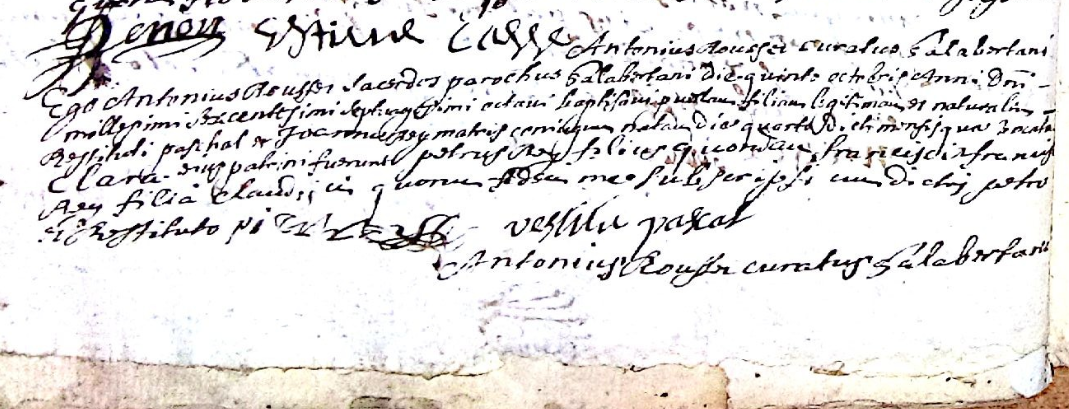 Antonius Rousser curatus Salabertani
Ego Antonius Rousser sacerdos parochus Salabertani die quinta octobris Anni Dni
millesimi sexcentesimi septuagesimi octavi baptisavi puellam filiam legitimam et naturalem
Restituti paschal et Joannae Rey matris coniugum natam die quarta dicti mensis quae vocata
Clara eius patrini fuerunt petrus Rey filius quondam francisci et francisca
Rey filia Claudii in quorum fidem me subscripsi cum dictis petro
et Restituto
pascat
Antonius Rousser curatus Salabertani